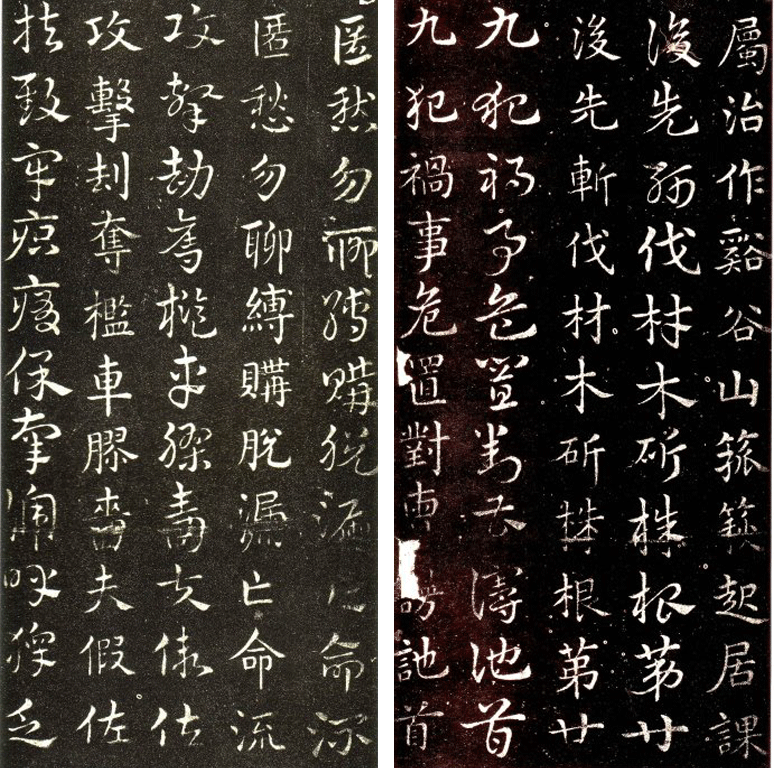 屬治作谿谷山箛篍起居課
後先斬伐材木斫株根第廿
後先斬伐材木斫株根第廿
九犯禍事危置對曹訑首
九犯禍事危置對曹訑首
匿愁勿聊縛購脫漏亡命流
匿愁勿聊縛購脫漏亡命流
攻擊劫奪檻車膠嗇夫假佐
攻擊刦奪檻車膠嗇夫假佐
扶致牢疻痏保辜啼呼乏